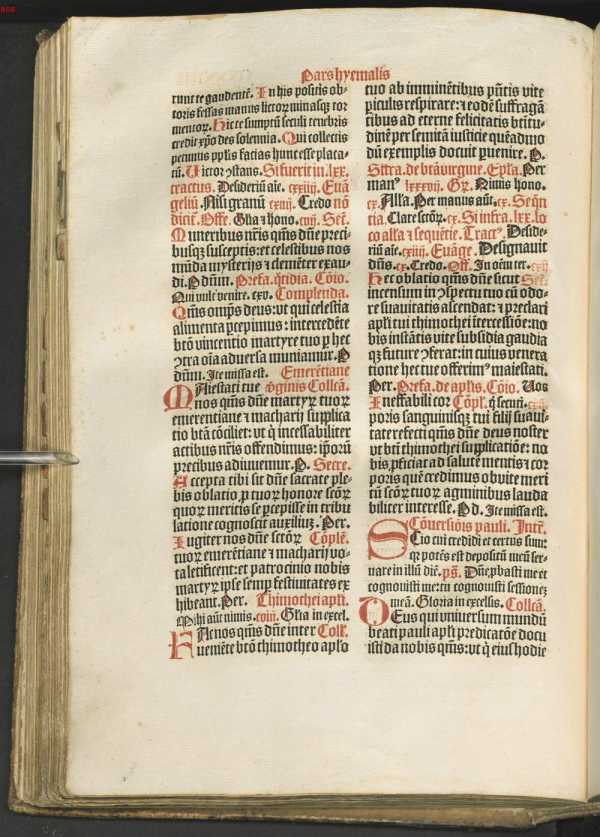 Pars hyemalis
runt te gaudentē. In his positis ob-
toris fessas manus lictor minasqꝫ tor
mentoꝝ. Hic te sumptū seculi tenebris
credit xp̄o des solemnia. Qui collectis
pecunus ꝓpl̄is facias hunc esse placa-
tū. Victor ꝯstans. Si fuerit in .lxx.
tractus. Desideriū aīe. cxxiiij. Euā
geliū. Nisi granū cxiij. Credo nō
dicit̄. Offe. Gl̄ia ⁊ hono. cvij. Sec̄.
Muneribus nr̄is qm̄s dn̄e preci-
busqꝫ susceptis: et celestibus nos
mūda mysterijs ⁊ clemēter exau-
di. P dn̄m. Prefa. q̄tidia. Cōio.
Qui vult venire. cxv. Complenda.
Qm̄s om̄ps deus: vt qui celestia
alimenta ꝑcepimus: intercedēte
btō vincentio martyre tuo ꝑ hec
ꝯtra oīa aduersa muniamur. P
dn̄m. Ite missa est. Emerētiane
Maiestati tue v̄ginis Collecā.
nos qm̄s dn̄e martyꝝ tuoꝝ
emerentiane ⁊ macharij supplica
tio btā cōciliet: vt q̄ incessabiliter
actibus nr̄is offendimus: ip̄oꝝ
precibus adiuuemur. P. Secre.
Accepta tibi sit dn̄e sacrate ple-
bis oblatio ꝓ tuoꝝ honore scōꝝ
quoꝝ meritis se ꝑcepisse in tribu
latione cognoscit auxiliuꝫ. Per.
Iugiter nos dn̄e sctōꝝ Cōplē.
tuoꝝ emerētiane ⁊ macharij vo-
ta letificent: et patrocinio nobis
martyꝝ ipse semꝑ festiuitates ex
hibeant. Per. Thimothei apl̄i.
Mihi aūt nimis. cviij. Gl̄ia in excel.
Fac nos qm̄s dn̄e inter Coll̄.
ueniēte btō thimotheo apl̄o
tuo ab imminētibus pn̄tis vite
ꝑiculis respirare: ⁊ eodē suffragā
tibus ad eterne felicitatis btītu-
dinē per semitā iusticie quēadmo
dū exemplis docuit ꝑuenire. P.
Sīra. de bt̄a v̄rgine. Epl̄a. Per
manꝰ lxxxvij. Gꝛ. Nimis hono.
cx. All̄a. Per manus aūt. cx. Seq̄n
tia. Clare sctōꝝ. cx. Si infra .lxx. lo
co all̄a ⁊ sequētie. Tract̄. Deside-
riū aīe. cxiiij. Euāge. Designauit
dn̄s. cx. Credo. Off. In oēm ter. cxij
Hec oblatio qm̄s dn̄e sicut Sec̄.
incensum in ꝯspectu tuo cū odo-
re suauitatis ascendat: ⁊ preclari
apl̄i tui thimothei ītercessiōe: no
bis instātis vite subsidia gaudia
qꝫ future ꝯferat: in cuius venera
tione hec tue offerimꝰ maiestati.
Per. Prefa. de apl̄is. Cōio. Vos
Ineffabili coꝛ Cōpl̄. q̄ secuti. cxij.
poris sanguinisqꝫ tui filij suaui-
tate refecti qm̄s dn̄e deus noster
vt btī thimothei supplicatiōe: no
bis ꝓficiat ad salutē mentis ⁊ coꝛ
poris que credimus obuite meri
tū scōꝝ tuoꝝ agminibus lauda
biliter interesse. P d. Ite missa est.
Cōuersiōis pauli. Introī.
Scio cui credidi et certus sum:
qꝛ potēs est depositū meū ser-
uare in illū diē. ps̄. Dn̄e ꝓbasti me et
cognouisti me: tu cognouisti sessionez
meā. Gloria in excelsis. Collecā.
Deus qui vniuersum mundū
beati pauli apl̄i predicatōe docu
isti da nobis qm̄s: vt q̄ eius hodie